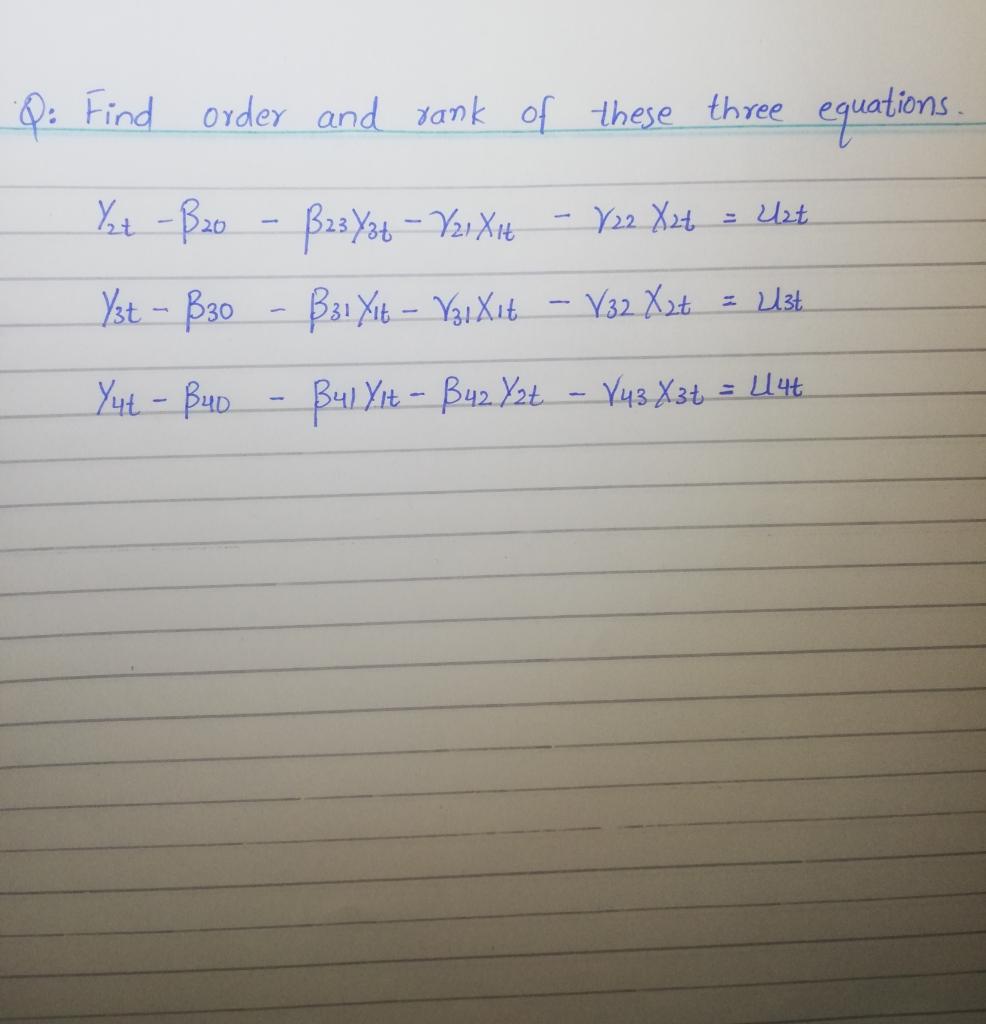 Q: Find order and rank of these three equations.
Y2t - β20 - β23Y3t - γ21X1t - γ22 X2t = U2t
Y3t - β30 - β31Y1t - γ31X1t - γ32 X2t = U3t
Y4t - β40 - β41Y1t - β42Y2t - γ43X3t = U4t